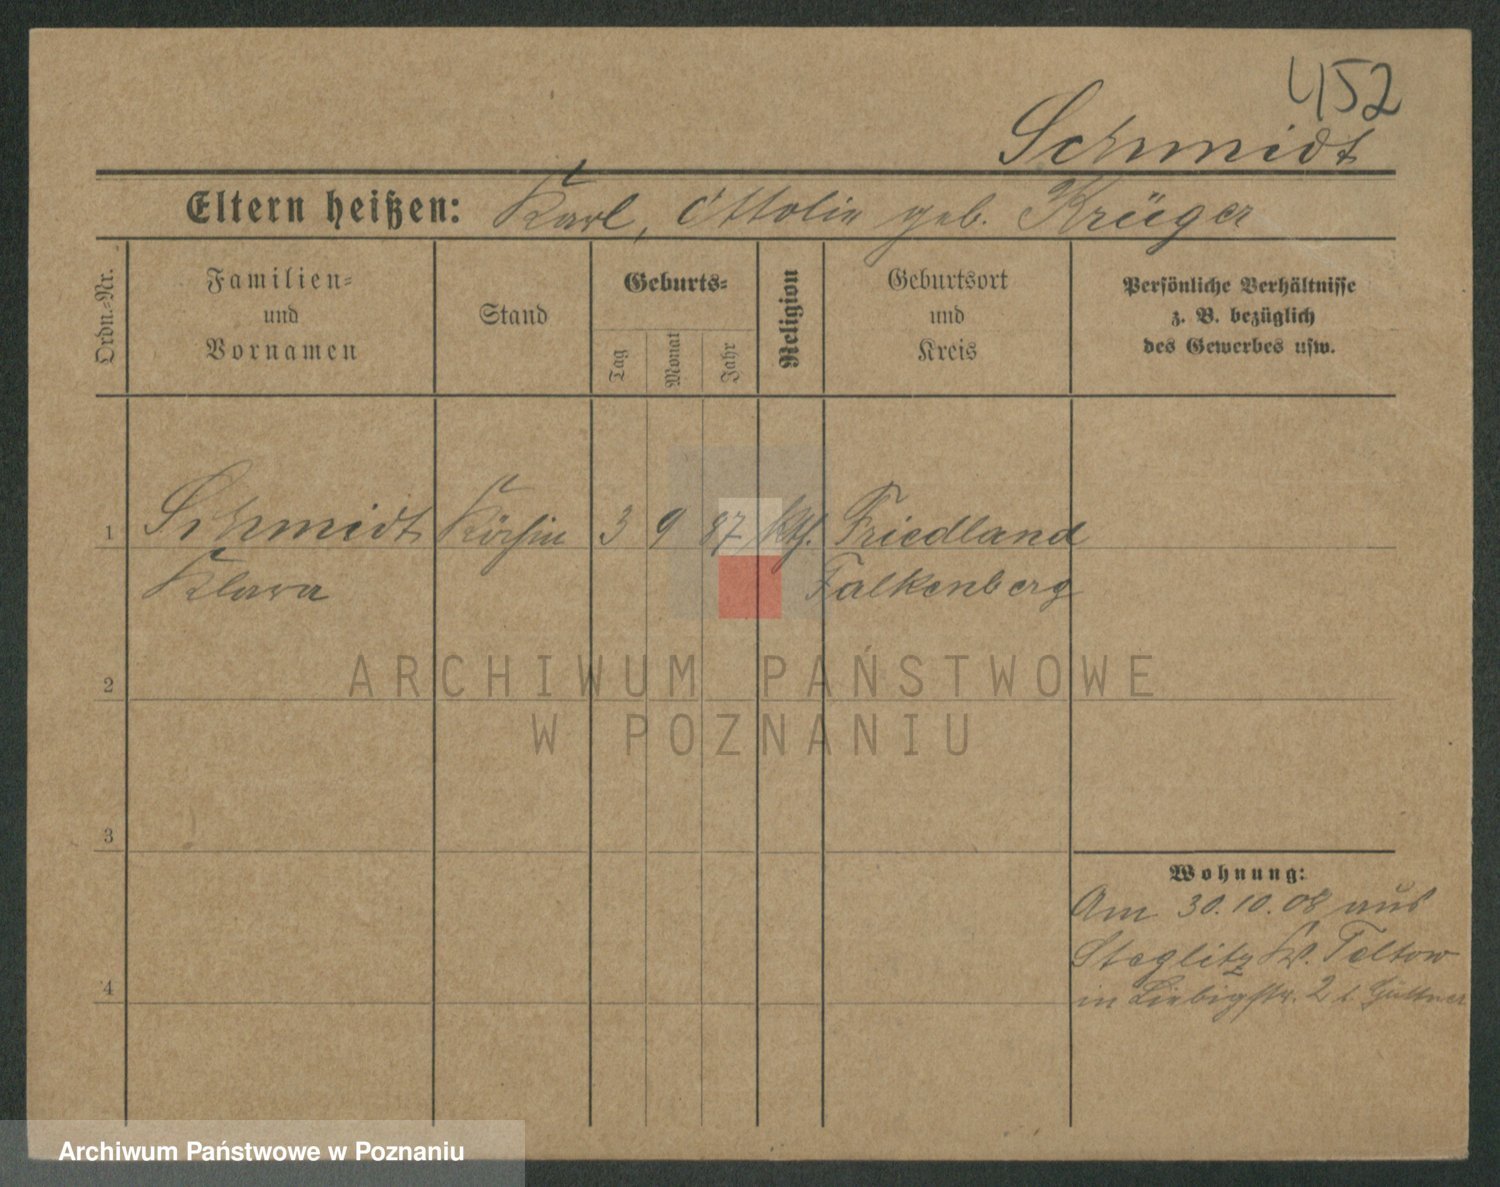 452
Schmidt
Eltern heißen: Karl, Ottolie geb. Krüger
Ordn.-Nr.
Familien-
und
Vornamen
Stand
Geburts-
Tag
Monat
Jahr
Religion
Geburtsort
und
Kreis
Persönliche Verhältnisse
z. B. bezüglich
des Gewerbes usw.
1 Schmidt Köchin 3 9 87 kth. Friedland
Klara Falkenberg
2
3
4
ARCHIWUM PAŃSTWOWE
W POZNANIU
Wohnung:
Am 30.10.08 aus
Steglitz Kr. Teltow
in Liebigstr. 2
Archiwum Państwowe w Poznaniu